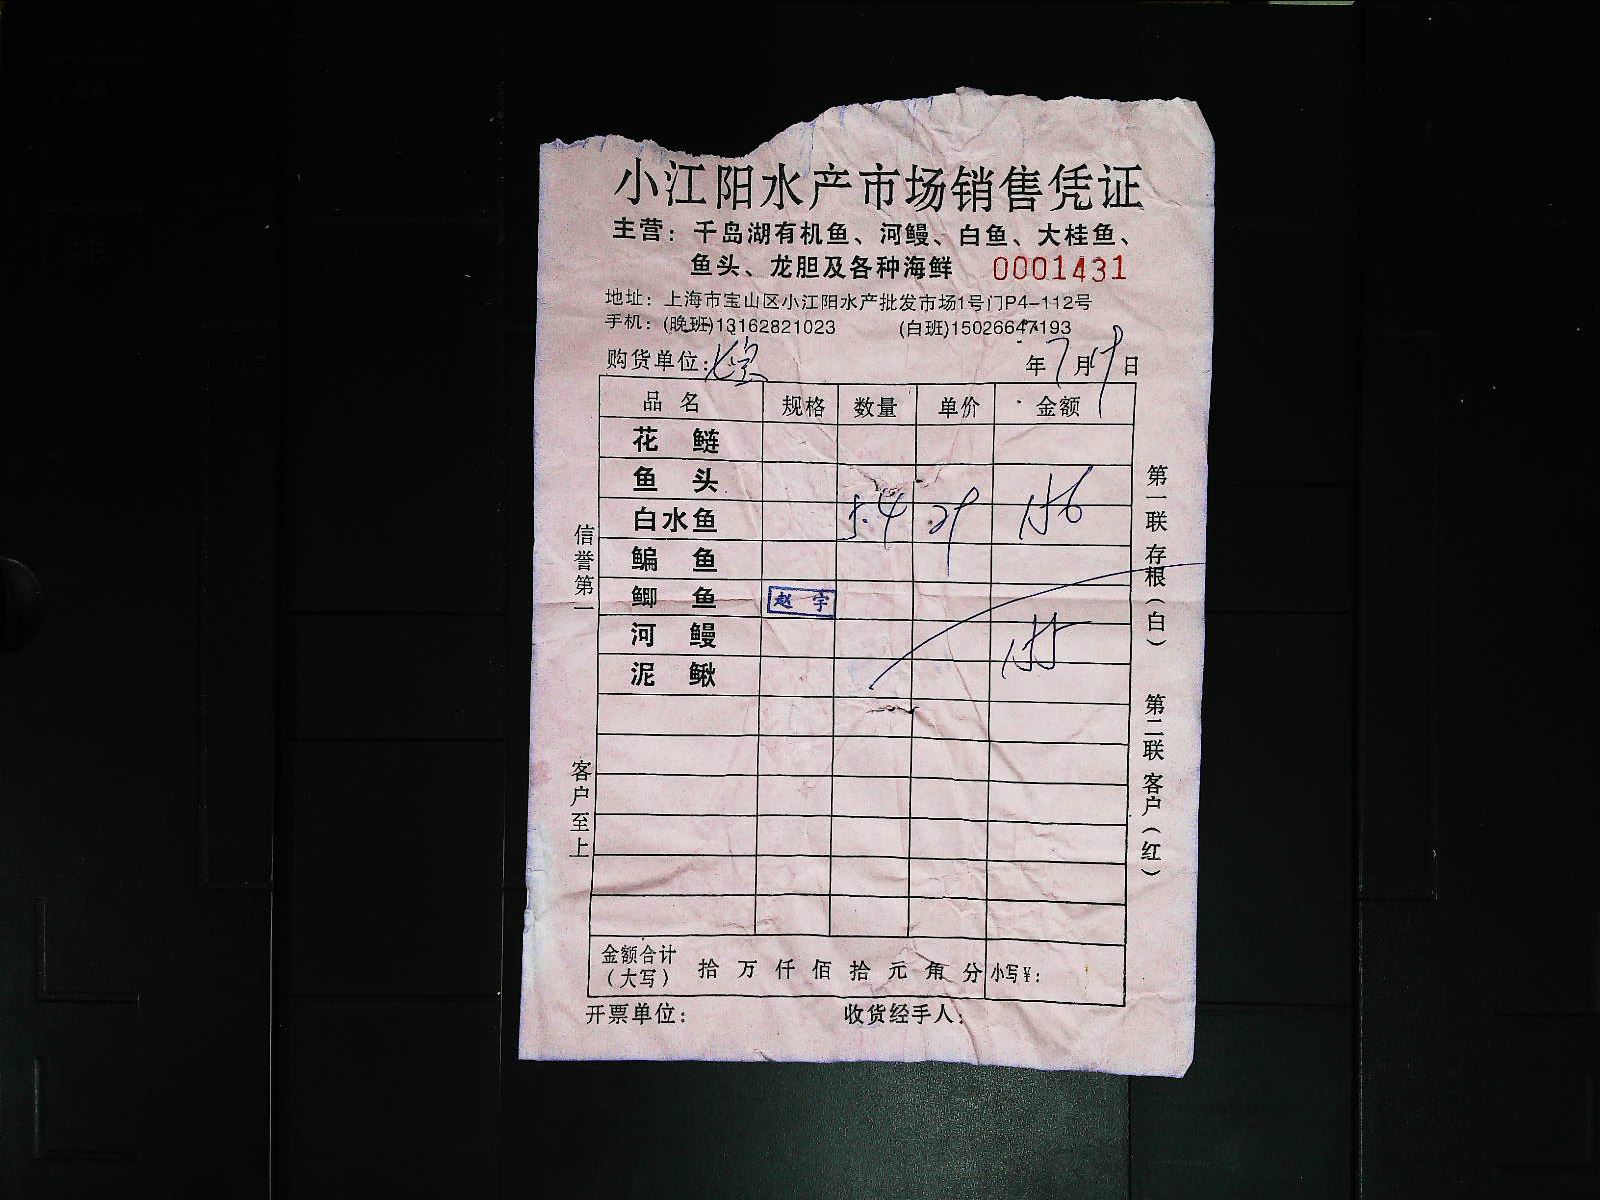 小江阳水产市场销售凭证
主营：千岛湖有机鱼、河鳗、白鱼、大桂鱼、
鱼头、龙胆及各种海鲜 0001431
地址：上海市宝山区小江阳水产批发市场1号门P4-112号
手机：(晚班)13162821023 (白班)15026647193
购货单位： 年7月9日
品名 规格 数量 单价 金额
花鲢
鱼头
白水鱼 5.4 29 156
鳊鱼
鲫鱼 赵宇
河鳗 155
泥鳅
金额合计（大写） 拾 万 仟 佰 拾 元 角 分 小写￥：
开票单位： 收货经手人：
信誉第一
客户至上
第一联 存根（白）
第二联 客户（红）